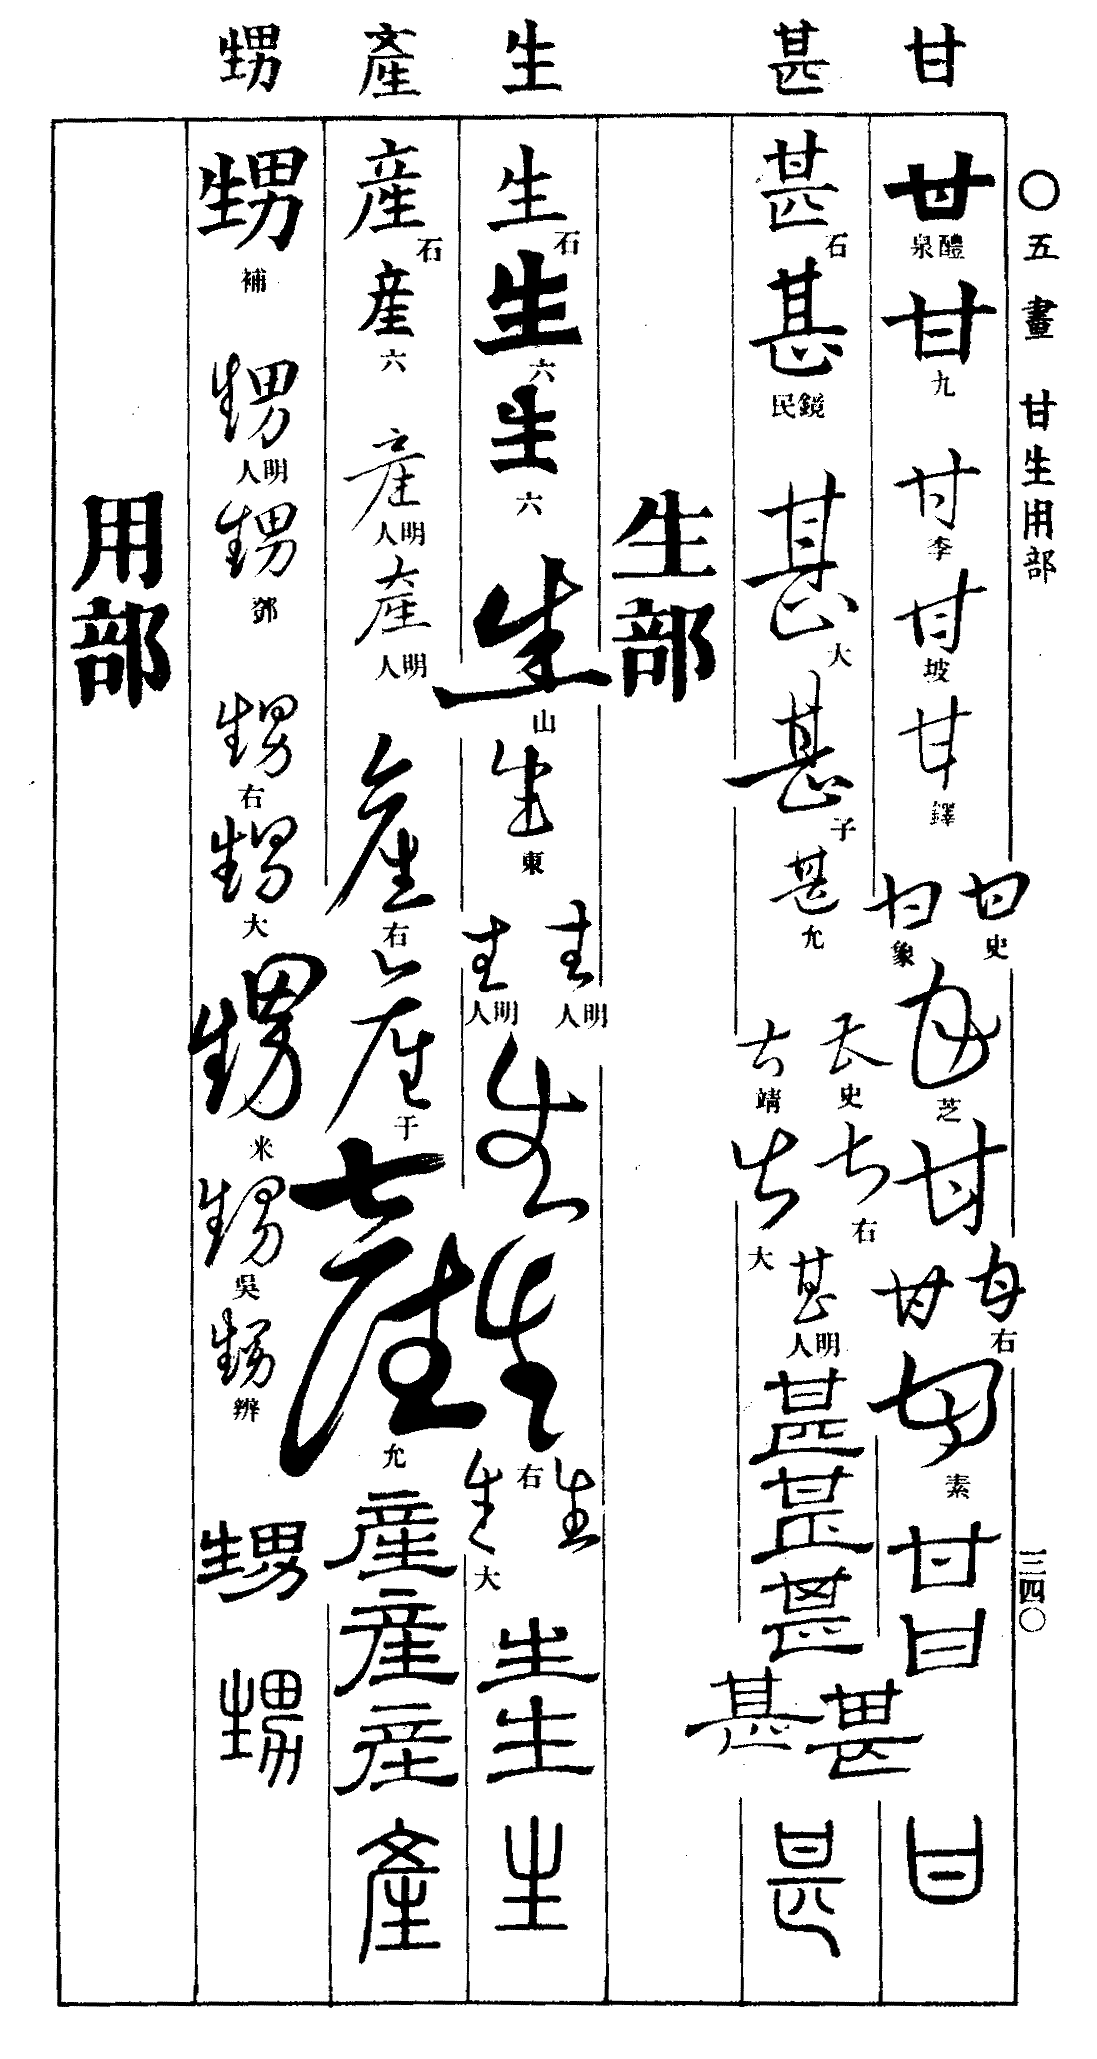 〇五畫 甘生用部 三四〇
甘
甘 醴泉
甘 九
甘 李
甘 坡
甘 鐸
甘 史
甘 象
甘 芝
甘
甘 甘 右
甘 素
甘
甘
甘
甚
甚 石
甚 民鏡
甚 大
甚 子
甚 允
甚 史
甚 靖
甚 右
甚 大
甚 明人
甚
甚
甚
甚
甚
甚
生部
生
生 石
生 六
生 六
生 山
生 東
生 明人
生 明人
生
生 右
生
生 大
生
生
生
產
産 石
産 六
産 明人
産 明人
産 右
産 于
産 允
産
産
産
產
甥
甥 補
甥 明人
甥 鄧
甥 右
甥 大
甥 米
甥 吳
甥 辨
甥
甥
用部